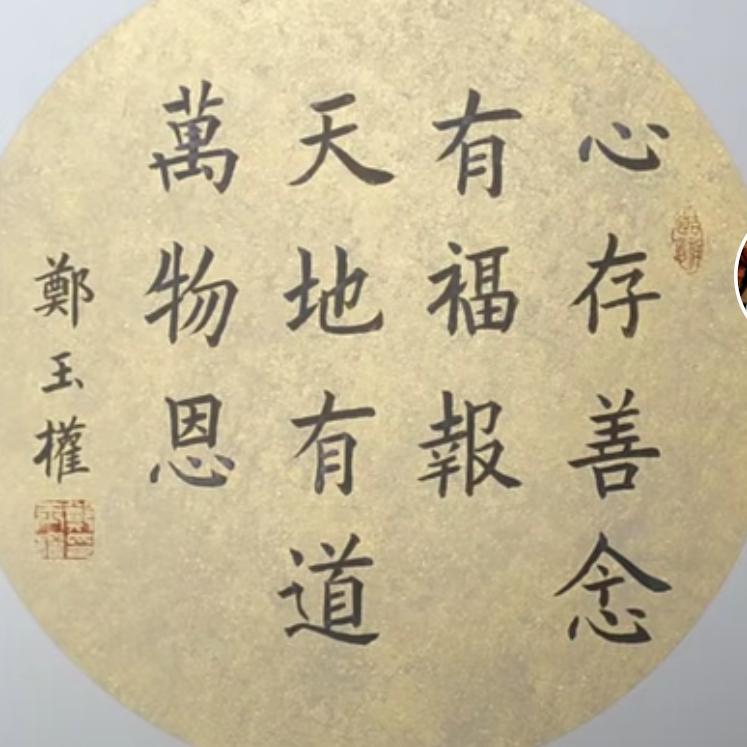 心存善念
有福報
天地有道
萬物恩
鄭玉權